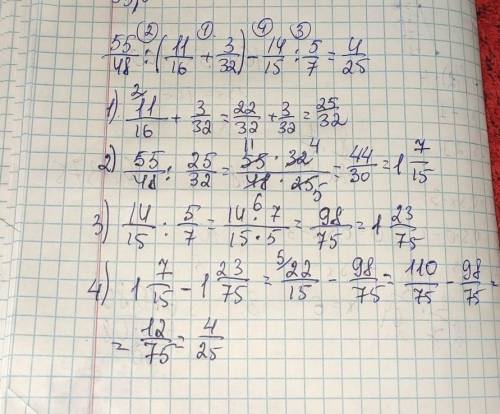 ② ① ④ ③
55/48 : (11/16 + 3/32) - 14/15 : 5/7 = 4/25
1) ²11/16 + 3/32 = 22/32 + 3/32 = 25/32
2) 55/48 : 25/32 = 55¹¹ · 32⁴ / 48₆ · 25₅ = 44/30 = 1 7/15
3) 14/15 : 5/7 = 14 · 7 / 15 · 5 = 98/75 = 1 23/75
4) 1 7/15 - 1 23/75 = ⁵22/15 - 98/75 = 110/75 - 98/75 =
= 12/75 = 4/25